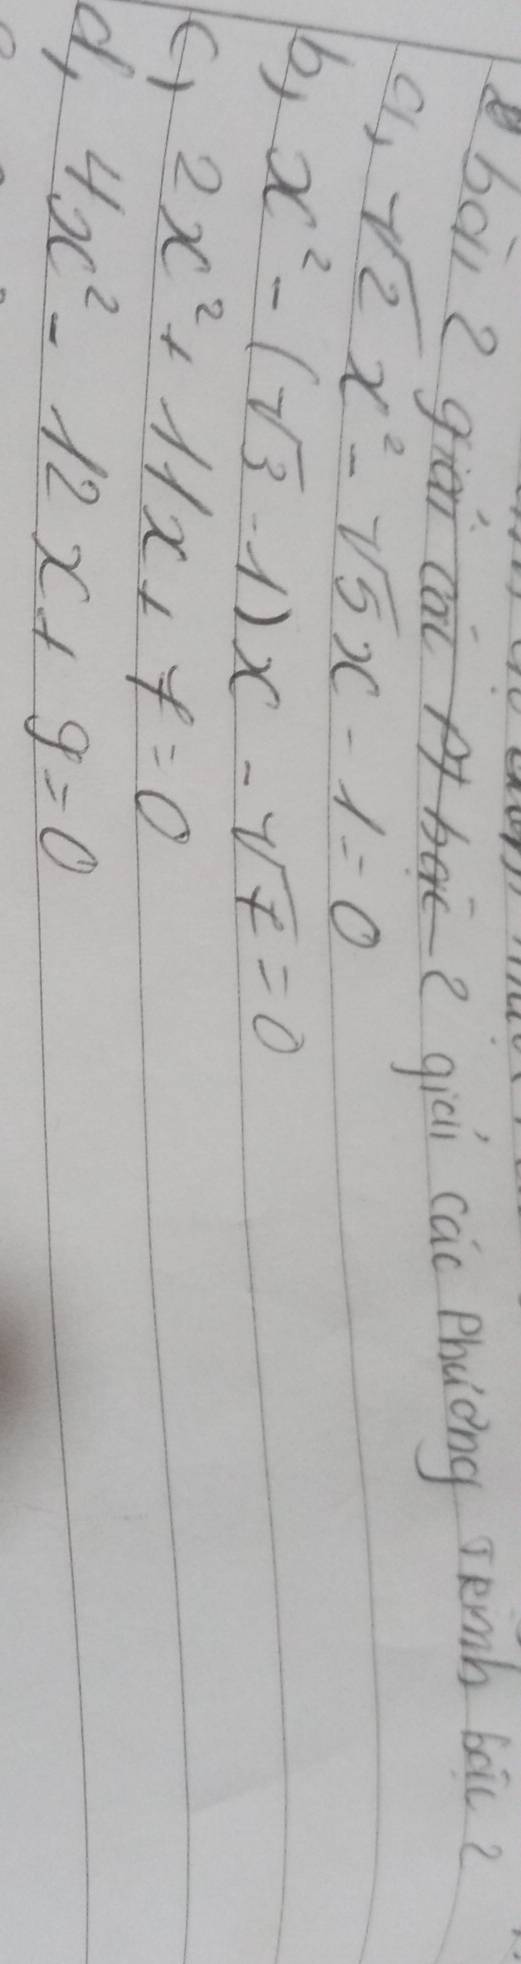 bài 2 giải các Pt bậc 2 giải các Phương Trình bậc 2
a, √2 x² - √5 x - 1 = 0
b, x² - (√3 - 1)x - √7 = 0
c, 2x² + 11x + 7 = 0
d, 4x² - 12x + 9 = 0